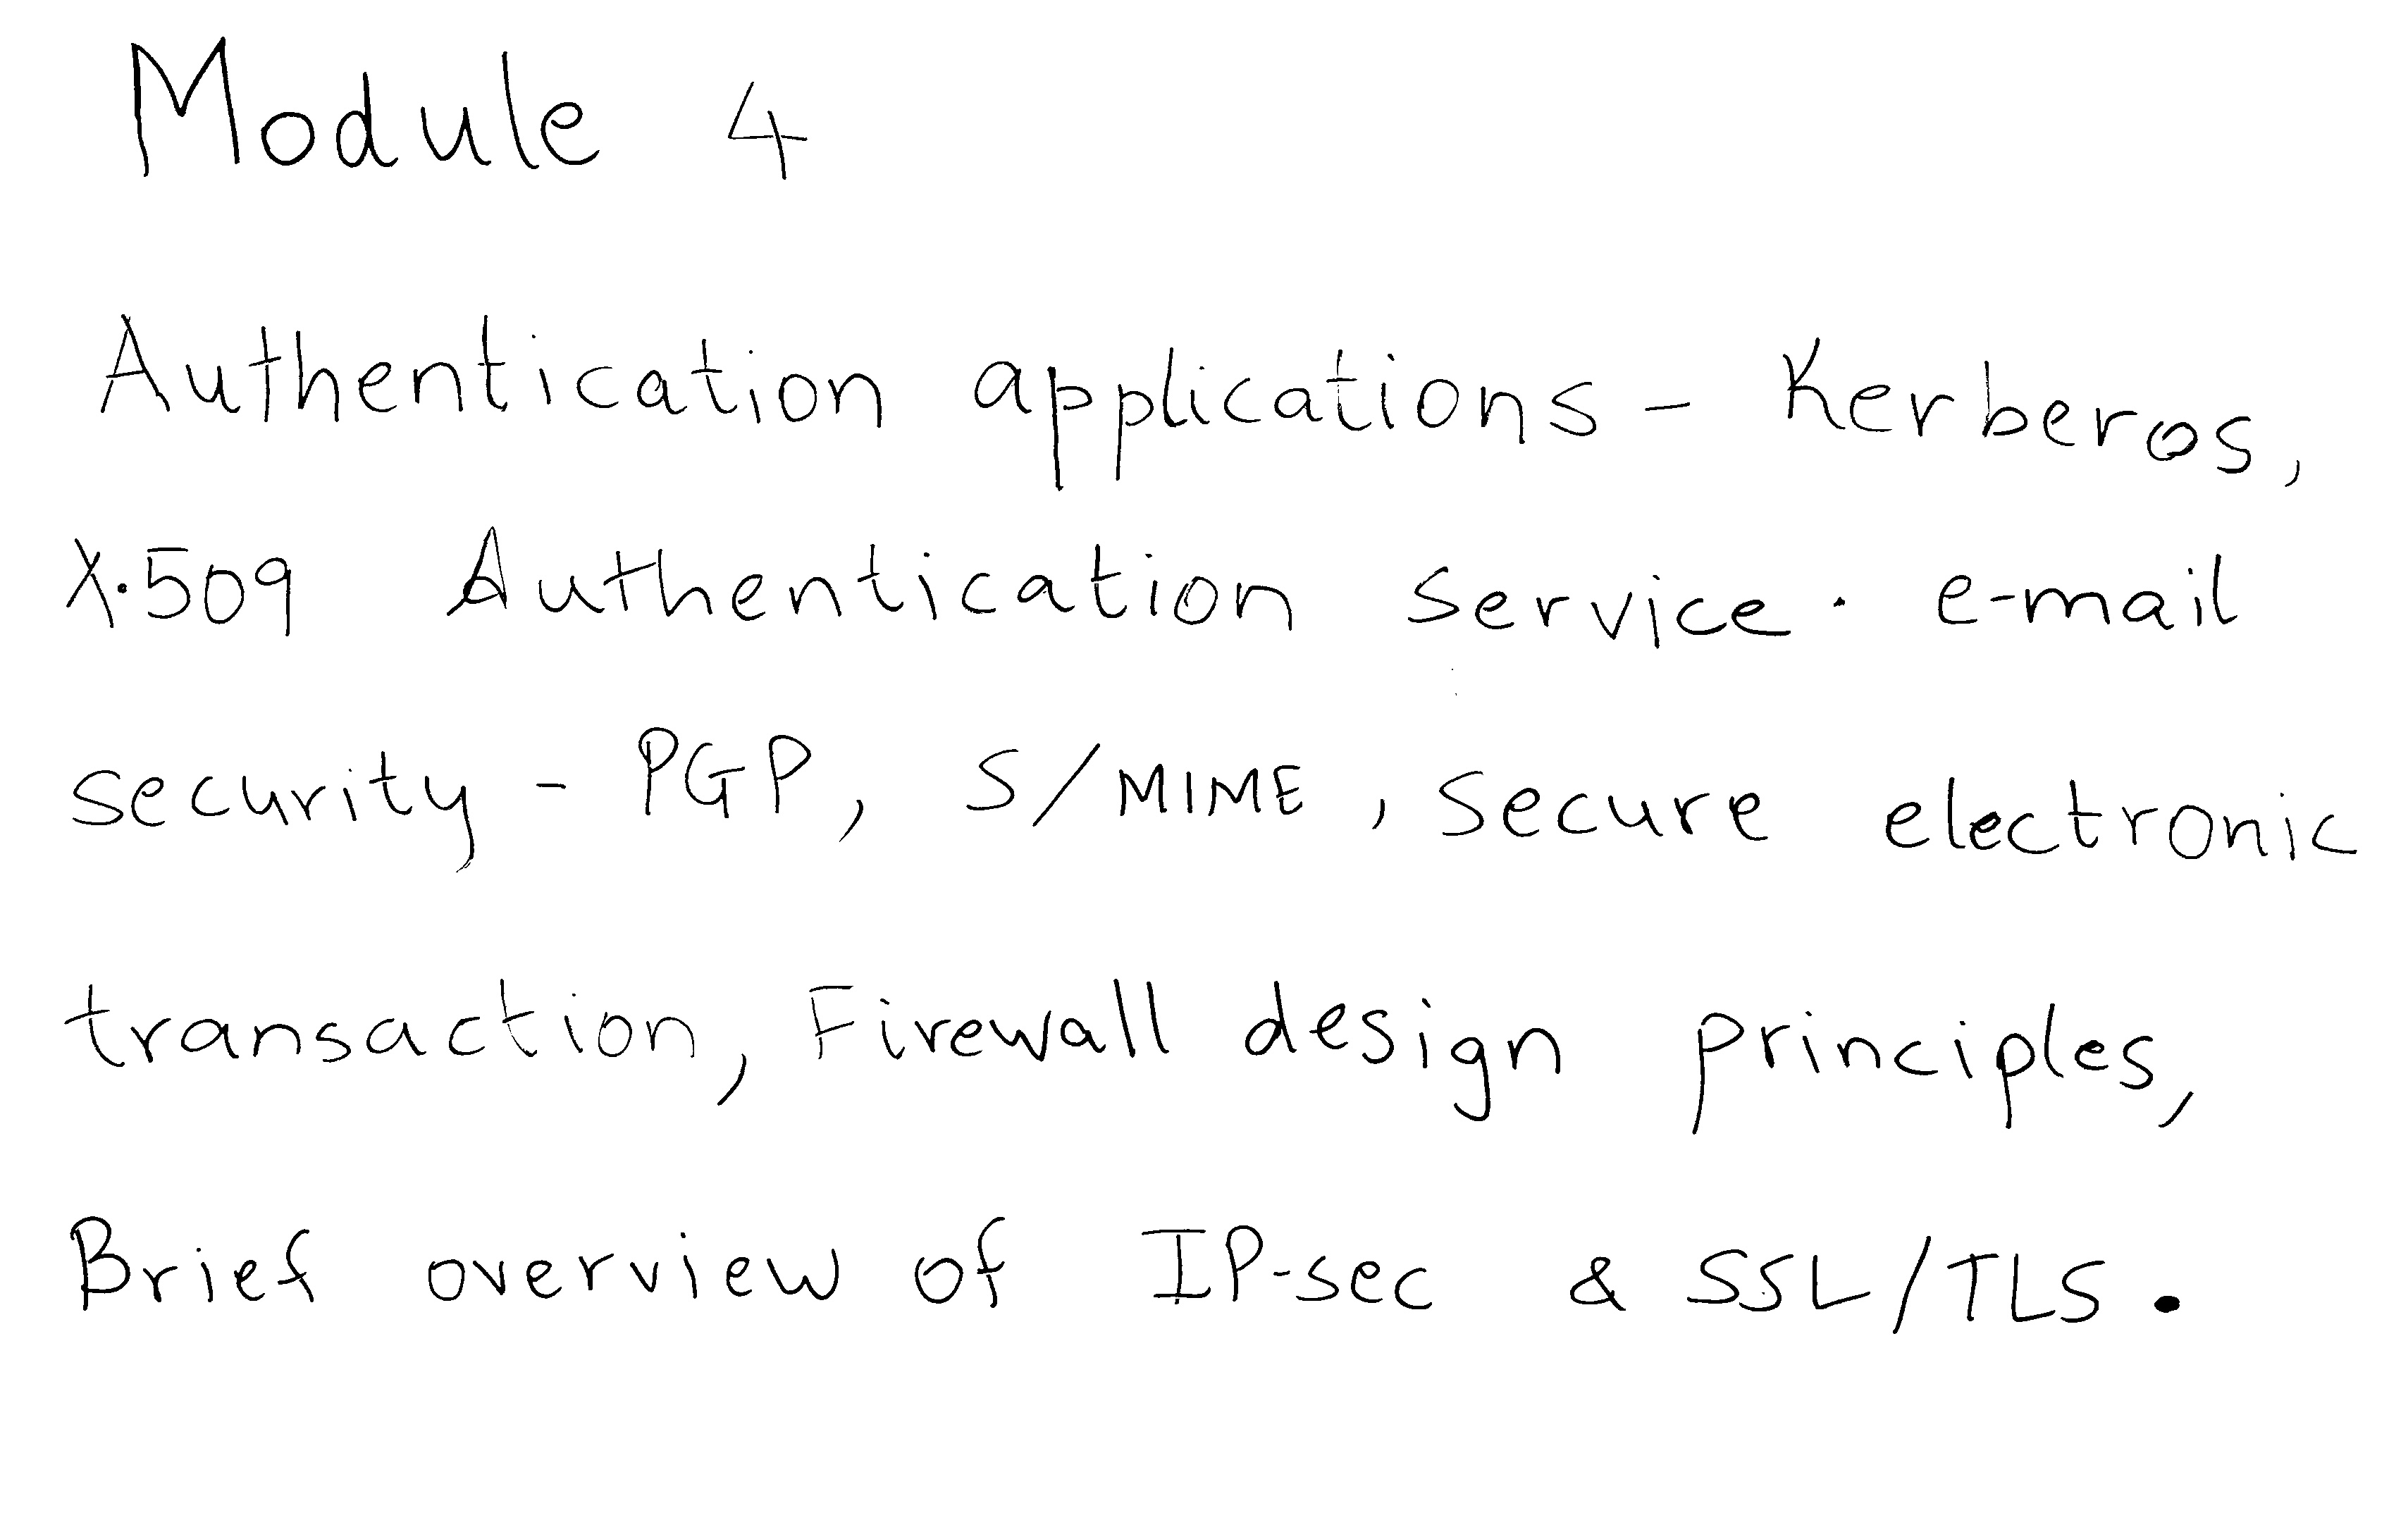 Module 4
Authentication applications - Kerberos,
X.509 Authentication service. e-mail
security - PGP, S/MIME, secure electronic
transaction, Firewall design principles,
Brief overview of IP-sec & SSL/TLS.